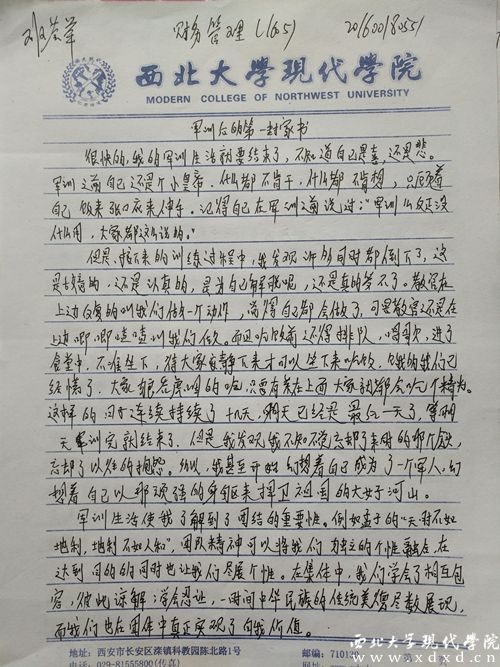 财务管理(1605) 201600180551
西北大学现代学院
MODERN COLLEGE OF NORTHWEST UNIVERSITY
军训后的第一封家书
很快的,我的军训生活就要结束了,不知道自己是喜,还是悲。
军训之前自己还是个小皇帝,什么都不肯干,什么都不肯想,只顾着
自己饭来张口衣来伸手。记得自己在军训之前说过:"军训么反正没
什么用,大家都这么说的。"
但是,接下来的训练过程中,我发现许多同时都倒下了,这
是,还是认真的,是为自己解脱呢,还是真的等不了。教官在
上边反复的叫我们做一个动作,觉得自己都会做了,可是教官还是在
上边唧唧喳喳叫我们做。而且吃饭前还得排队,唱歌,进了
食堂中,不准坐下,待大家安静下来才可以坐下来吃饭,
大家狼吞虎咽的吃,只要有菜在上面大家都会吃个精光。
这样的间连续持续了十天,明天已经是最后一天了,
天军训完就结束了。但是我发现我不知不觉忘却了来时的那个念头,
忘却了以往的抱怨。所以,我甚至开始幻想着自己成为了一个军人,幻
想着自己以那顽强的身躯来捍卫祖国的大好河山。
军训生活使我了解到了团结的重要性。例如孟子的"天时不如
地利,地利不如人和",团队精神可以将我们力独立的个性融合,在
达到目的的同时也让我们尽展个性。在集体中,我们学会了相互包
容,彼此谅解,学会忍让,一时间中华民族的传统美德尽数展现,
而我们也在团体中真正实现了自我价值。
地址:西安市长安区滦镇科教园陈北路1号 邮编:710130
电话:029-81555800(传真)
西北大学现代学院
www.dxd.cn